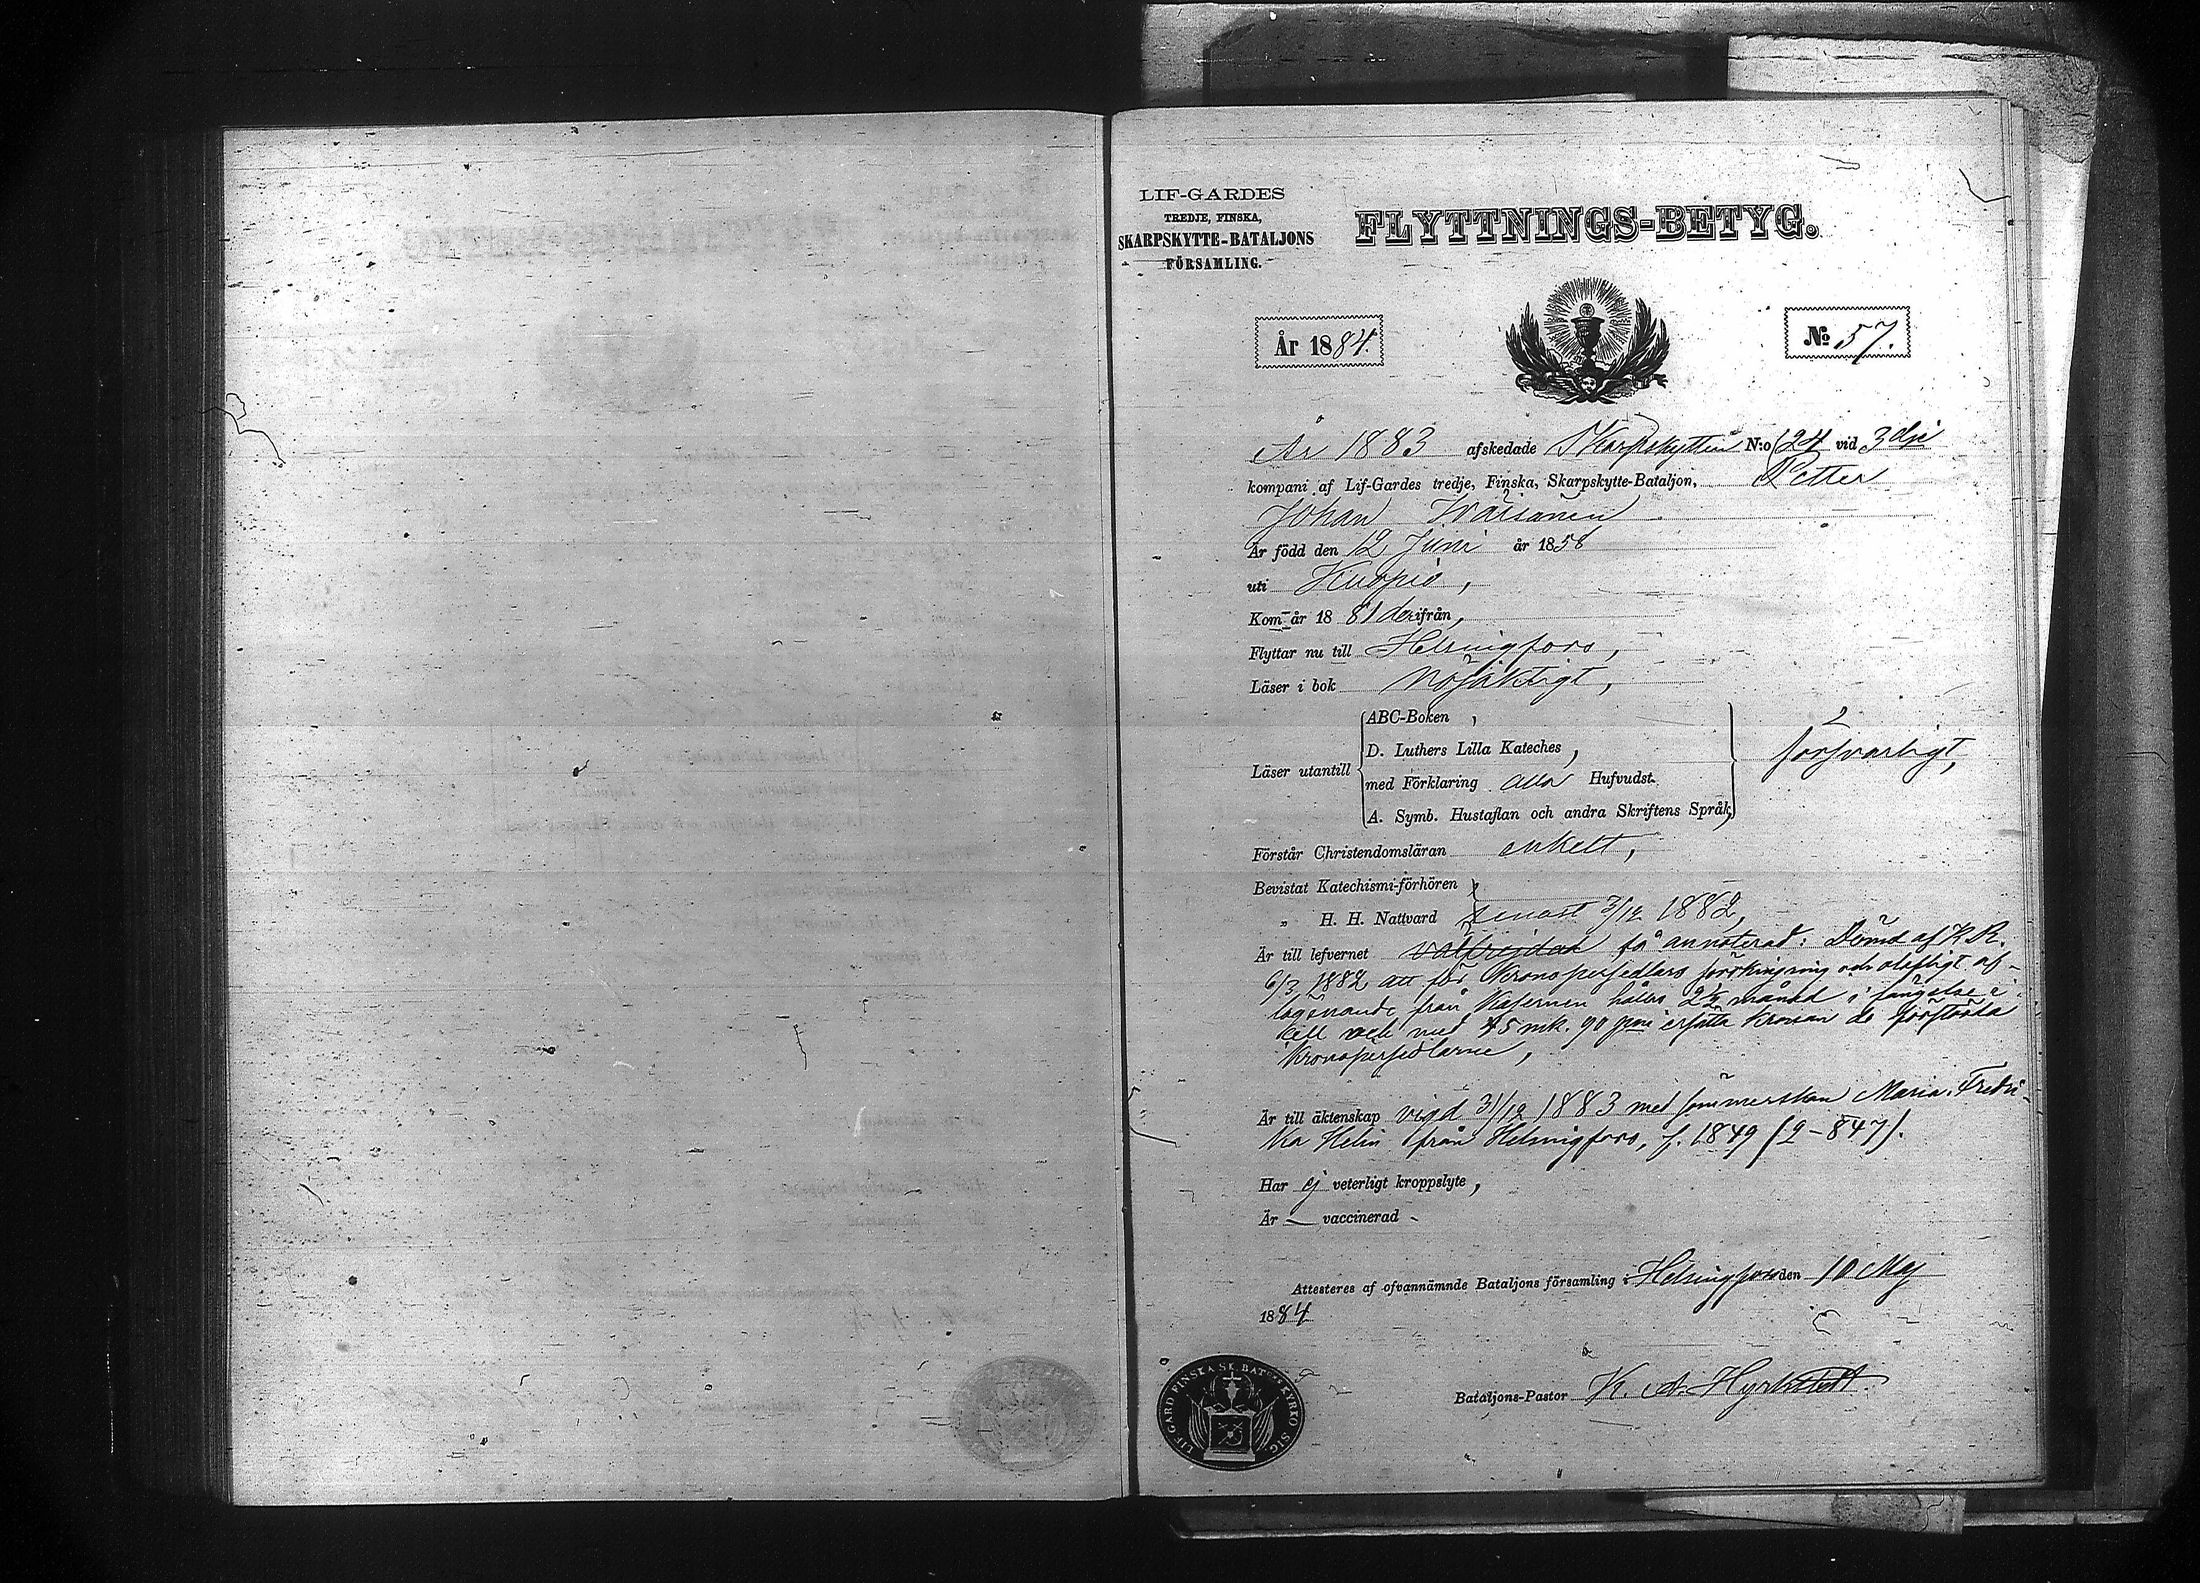 LIF-GARDES
TREDJE, FINSKA,
SKARPSKYTTE-BATALJONS
FÖRSAMLING.
FLYTTNINGS-BETYG.
År 1884.
No 57.
År 1883 afskedade Skarpskytten N:o 24 vid 3dje
kompani af Lif-Gardes tredje, Finska, Skarpskytte-Bataljon, Petter
Johan Wäisänen
Är född den 12 Juni år 1858
uti Kuopio,
Kom år 1881 derifrån,
Flyttar nu till Helsingfors,
Läser i bok nöjaktigt,
Läser utantill
ABC-Boken,
D. Luthers Lilla Kateches,
med Förklaring alla Hufvudst.
A. Symb. Hustaflan och andra Skriftens Språk,
försvarligt,
Förstår Christendomsläran enkelt,
Bevistat Katechismi-förhören
„ H. H. Nattvard senast 3/12 1882,
Är till lefvernet välfrejdad, så annoterad: Dömd af K. R.
6/3 1882 att för Kronopersedlars förskingring och olofligt af-
lägsnande från Kasernen hållas 2½ månad i fängelse i
cell och med 45 mk. 90 pni ersätta Kronan de förstörda
Kronopersedlarne,
Är till äktenskap vigd 31/12 1883 med sömmerskan Maria Fredri-
ka Helin från Helsingfors, f. 1849 (2-847).
Har ej veterligt kroppslyte,
Är — vaccinerad -
Attesteras af ofvannämnde Bataljons församling i Helsingfors den 10 Maj
1884
Bataljons-Pastor K. A. Hyrkstedt.
LIF-GARD FINSKA SK. BAT:S KYRKO SIG.